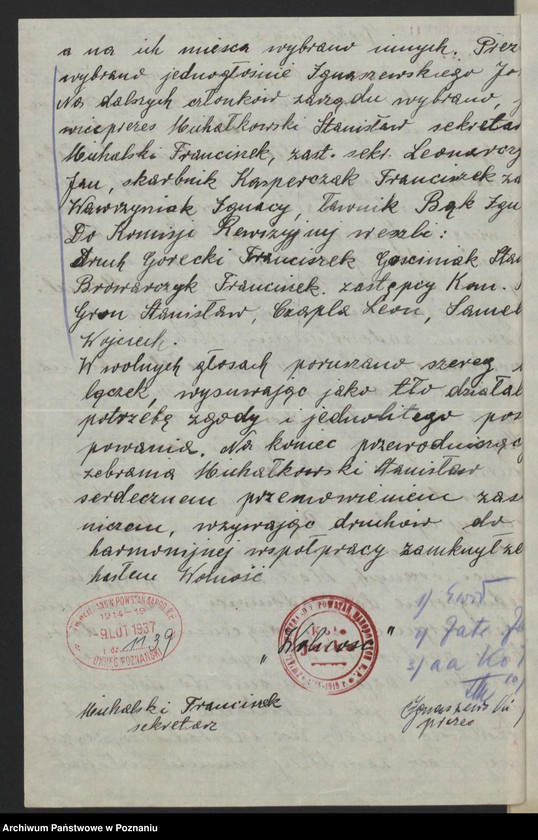 a na ich miejsca wybrano innych. Prez
wybrano jednogłośnie Ignaszewskiego Jó
Na dalszych członków zarządu wybrano,
wiceprezes Michałkowski Stanisław sekretar
Michalski Franciszek, zast. sekr. Leonarczy
Jan, skarbnik Kasperczak Franciszek za
Wawrzyniak Ignacy, ławnik Bąk Igna
Do Komisji Rewizyjnej weszli:
Druh Gorecki Franciszek Gościniak Stan
Browarczyk Franciszek. zastępcy Kom.
Gron Stanisław, Czapla Leon, Samel
Wojciech.
W wolnych głosach poruszano szereg
lączek, wysuwając jako tło działal
potrzebę zgody i jednolitego pos
powania. Na koniec przewodnicząc
zebrania Michałkowski Stanisław
serdecznem przemówieniem zas
niczem, wzywając druhów do
harmonijnej współpracy zamknął ze
hasłem Wolność
POWSTAŃ. NAROD. R.P.
1914-19
9. LUT 1937
L.dz. 1139
OKRĘG POZNAŃSKI
POWSTAŃ NARODOWYCH R.P.
Koło
"Wolność"
1/
2/
3/ aa
Michalski Franciszek
sekretarz
Ignaszewski
prezes
Archiwum Państwowe w Poznaniu